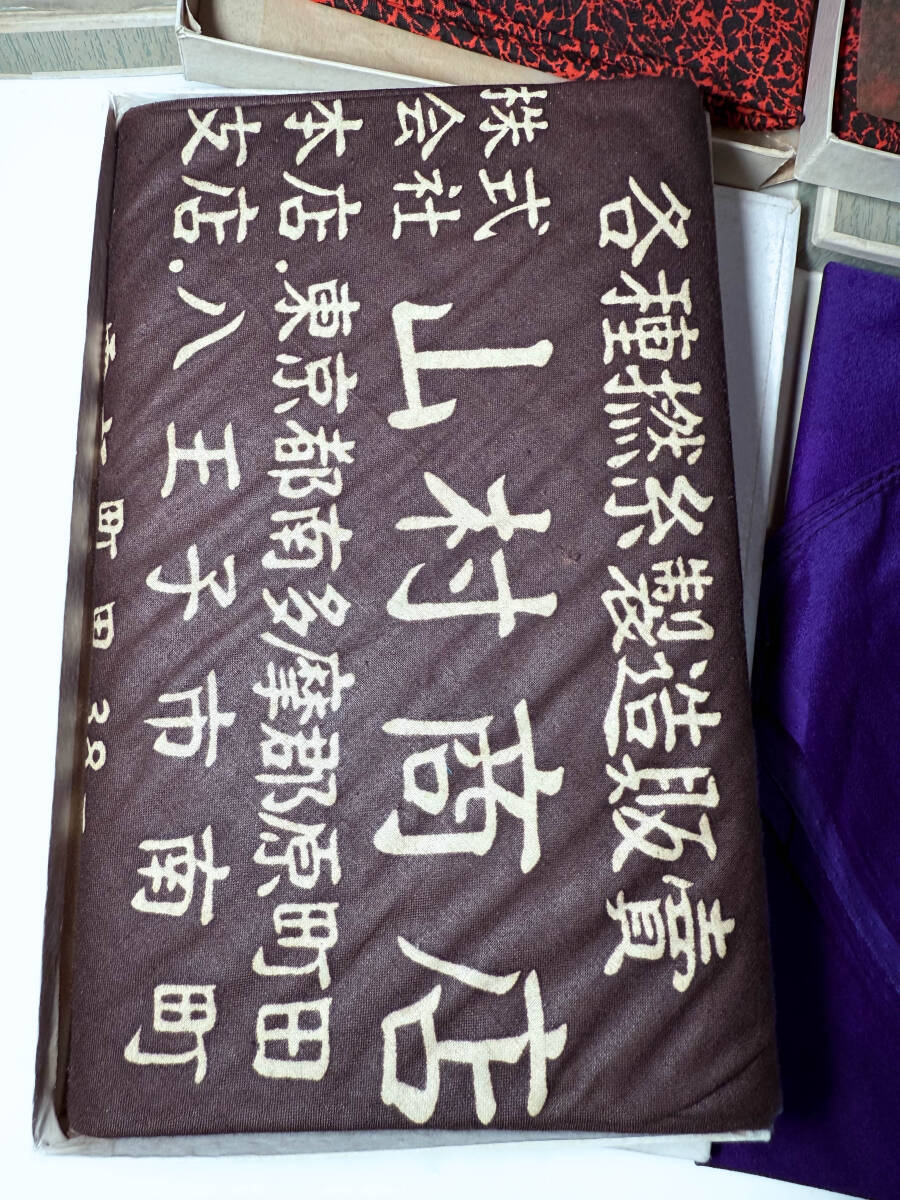 各種撚糸製造販賣
株式会社 山村商店
本店.東京都南多摩郡原町田
支店.八王子市南町
町田